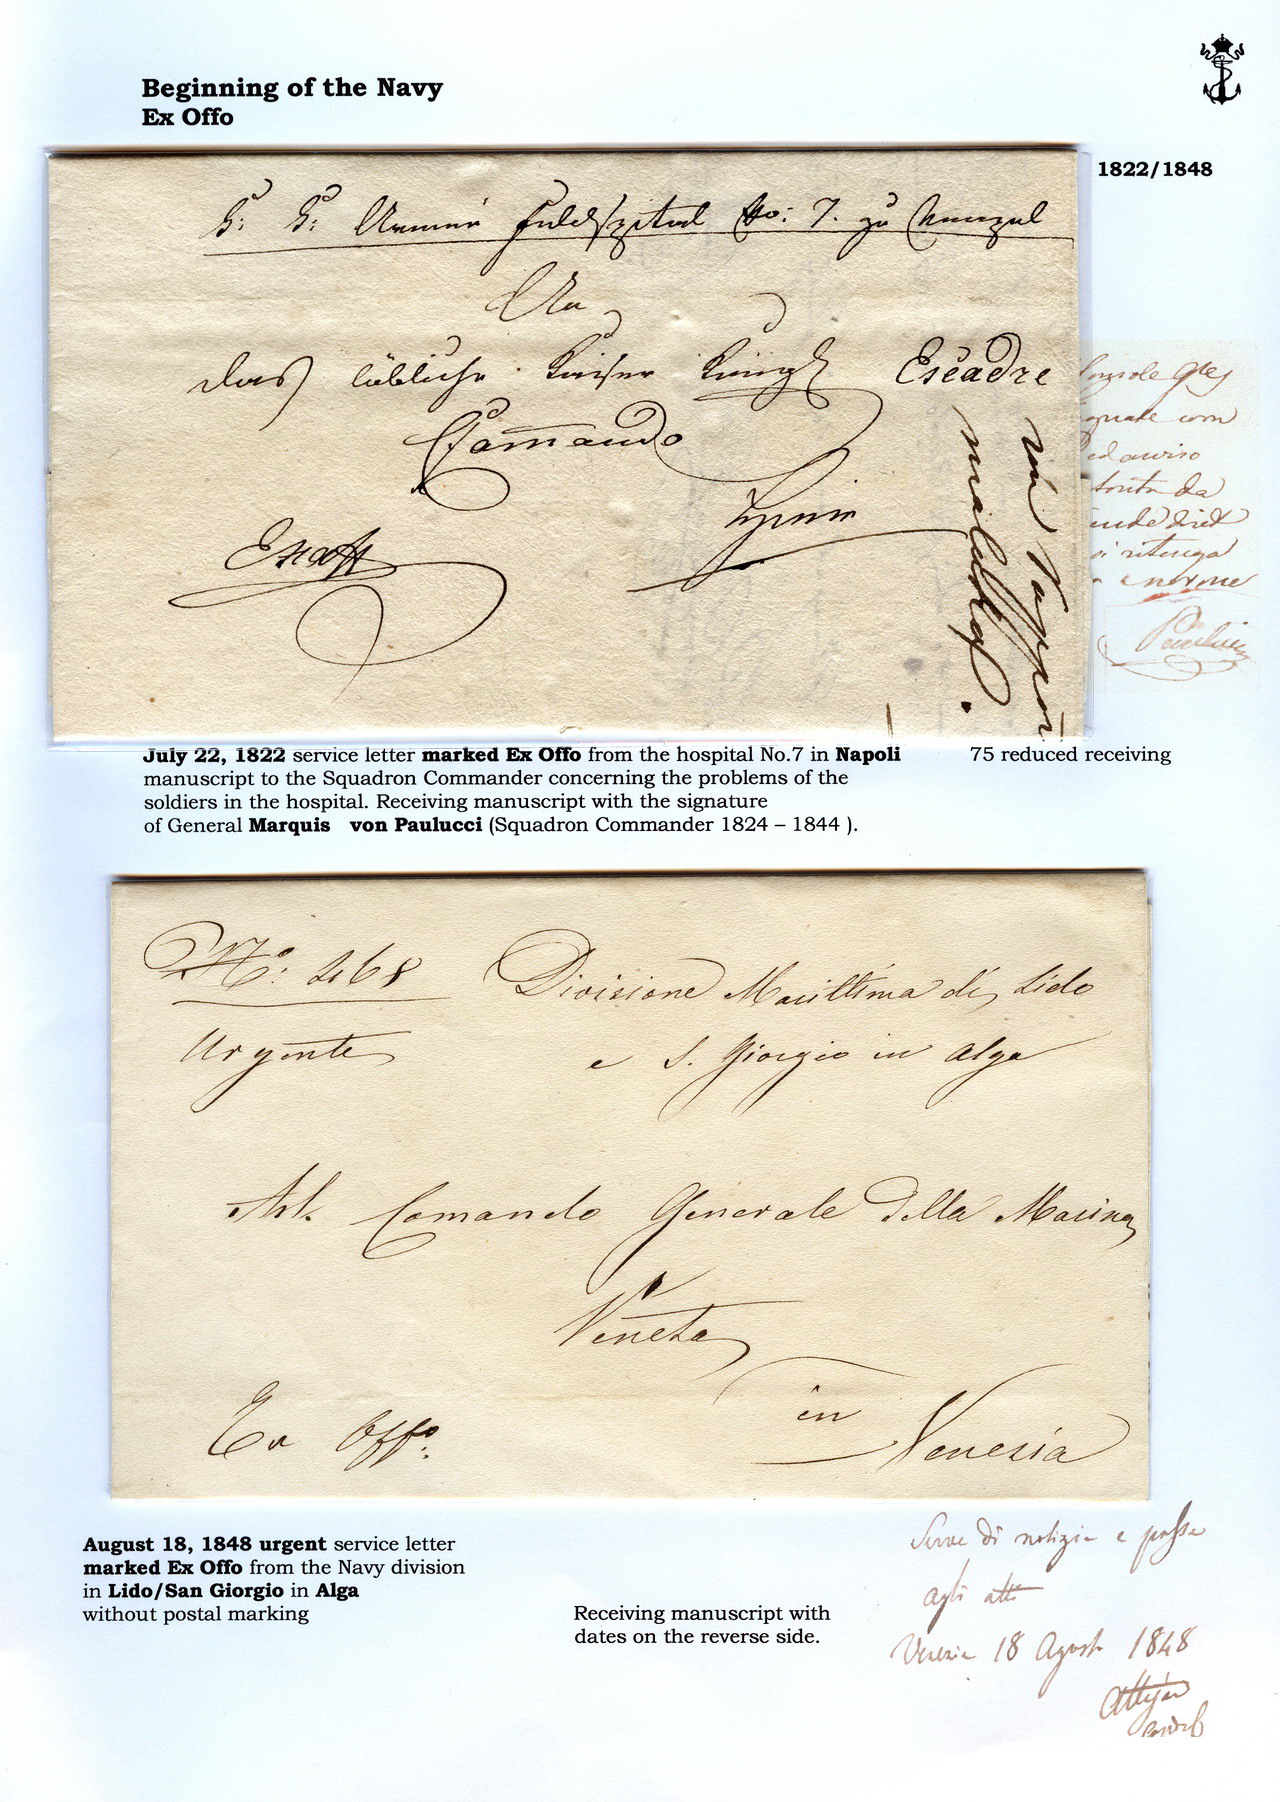 Beginning of the Navy
Ex Offo
1822/1848
K: K: Armee Feldspital No: 7. zu Neapel
An
das löbliche Kaiser Königl Escadre
Comando
Exoff
ed avviso
ritenga
July 22, 1822 service letter marked Ex Offo from the hospital No.7 in Napoli
75 reduced receiving
manuscript to the Squadron Commander concerning the problems of the
soldiers in the hospital. Receiving manuscript with the signature
of General Marquis von Paulucci (Squadron Commander 1824 – 1844 ).
No: 468 Divisione Marittima di Lido
Urgente e S. Giorgio in Alga
Al Comando Generale della Marina
Veneta
in
Ex Offo. Venezia
August 18, 1848 urgent service letter
marked Ex Offo from the Navy division
in Lido/San Giorgio in Alga
without postal marking
Receiving manuscript with
dates on the reverse side.
Serve di notizia e passa
agli atti
Venezia 18 Agosto 1848